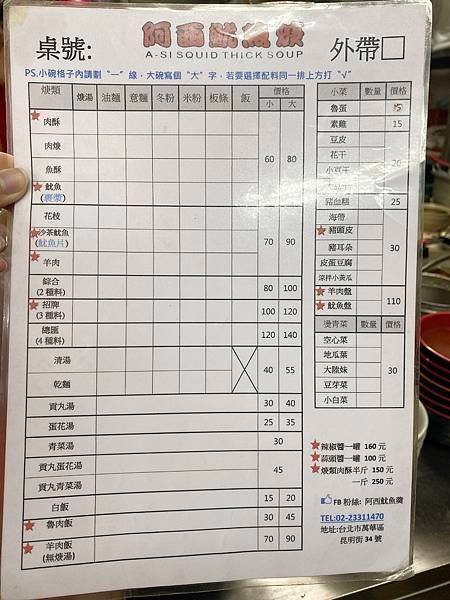 桌號:
阿西魷魚焿
A-SI SQUID THICK SOUP
外帶□
PS.小碗格子內請劃“一”線，大碗寫個“大”字，若要選擇配料同一排上方打“√”
焿類 焿湯 油麵 意麵 冬粉 米粉 板條 飯 價格
小 大
★肉酥
肉焿
魚酥
★魷魚
(裹漿)
60 80
花枝
★沙茶魷魚
(魷魚片)
★羊肉
70 90
綜合
(2種料) 80 100
★招牌
(3種料) 100 120
總匯
(4種料) 120 140
清湯
乾麵
40 55
貢丸湯 30 40
蛋花湯 25 35
青菜湯 30
貢丸蛋花湯
貢丸青菜湯
45
白飯 15 20
★魯肉飯 30 45
★羊肉飯
(無焿湯) 70 90
小菜 數量 價格
魯蛋
素雞 15
豆皮
花干
小豆干
20
豬血糕 25
海帶
★豬頭皮
豬耳朵
皮蛋豆腐
涼拌小黃瓜
30
★羊肉盤
★魷魚盤
110
燙青菜 數量 價格
空心菜
地瓜葉
大陸妹
豆芽菜
小白菜
30
★辣椒醬一罐 160 元
★蒜頭醬一罐 100 元
★焿類肉酥半斤 150 元
一斤 250 元
FB 粉絲: 阿西魷魚羹
TEL:02-23311470
地址:台北市萬華區
昆明街 34 號